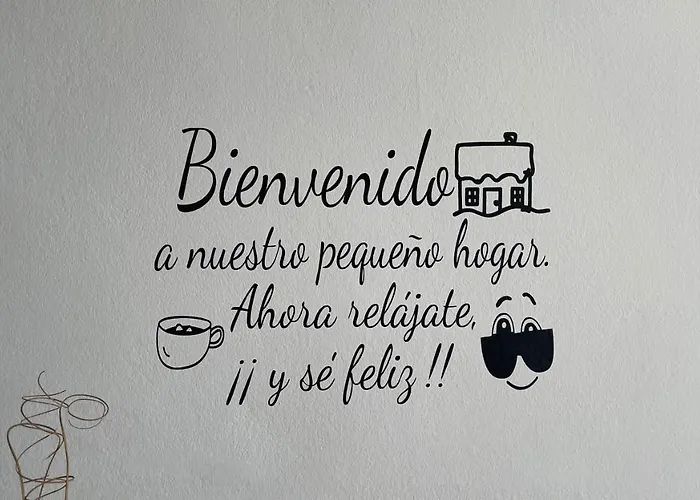 Bienvenido
a nuestro pequeño hogar.
Ahora relájate,
¡¡ y sé feliz !!